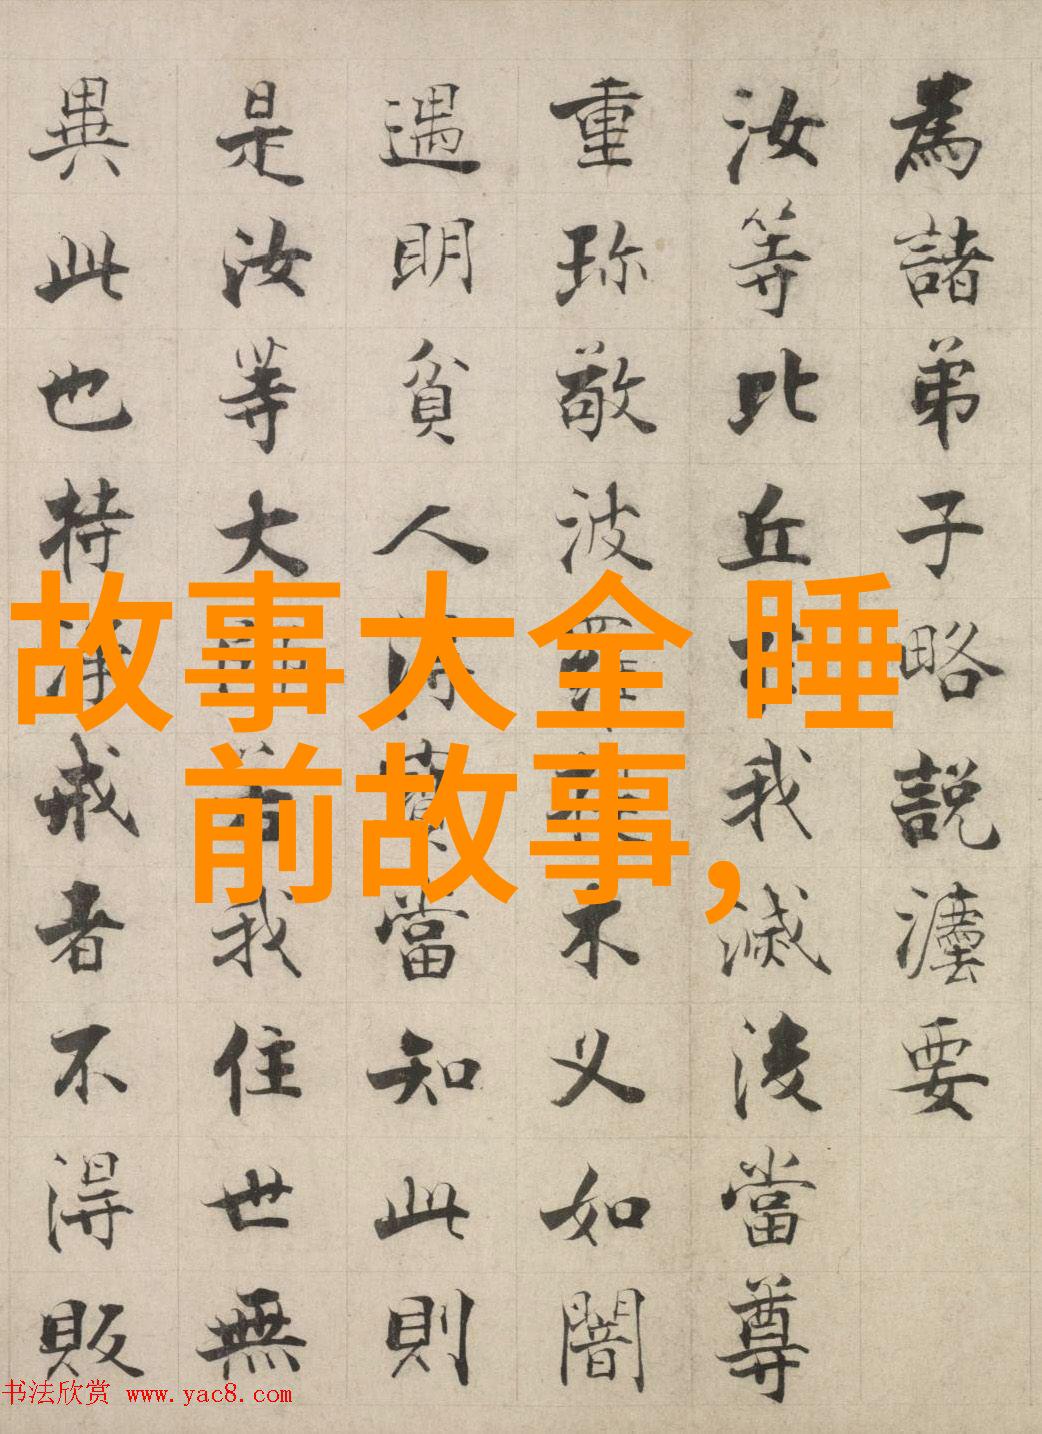 為諸弟子略說灋要
汝等比丘我滅後當尊
重珎敬波羅木义如闇
遇明貧人得當知此則
是汝等大我住世無
異此也持淨戒者不得販
故事大全 睡
前故事,
书法欣赏 www.yac8.com